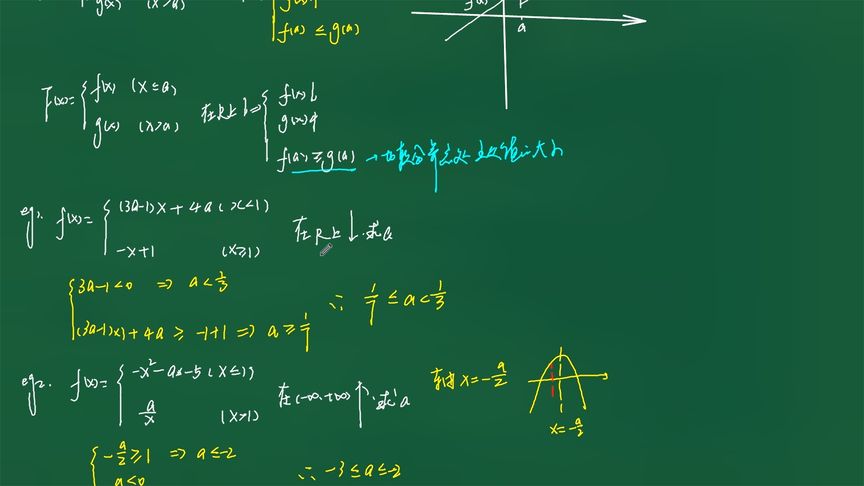 g(x) (x>a)
f(a) ≤ g(a)
f(x) a
F(x)= { f(x) (x≤a)
g(x) (x>a)
在R上↓⇒ { f(x)↓
g(x)↓
f(a) ≥ g(a) → 比较分界点处
eg1. f(x)= { (3a-1)x + 4a (x<1)
-x+1 (x≥1)
在R上↓.求a
{ 3a-1<0 ⇒ a<1/3
(3a-1)×1+4a ≥ -1+1 ⇒ a≥1/7
∴ 1/7 ≤ a < 1/3
eg2. f(x)= { -x²-ax-5 (x≤1)
a/x (x>1)
在(-∞,+∞)↑.求a
轴x=-a/2
x=-a/2
{ -a/2≥1 ⇒ a≤-2
a<0
∴ -3≤a≤-2